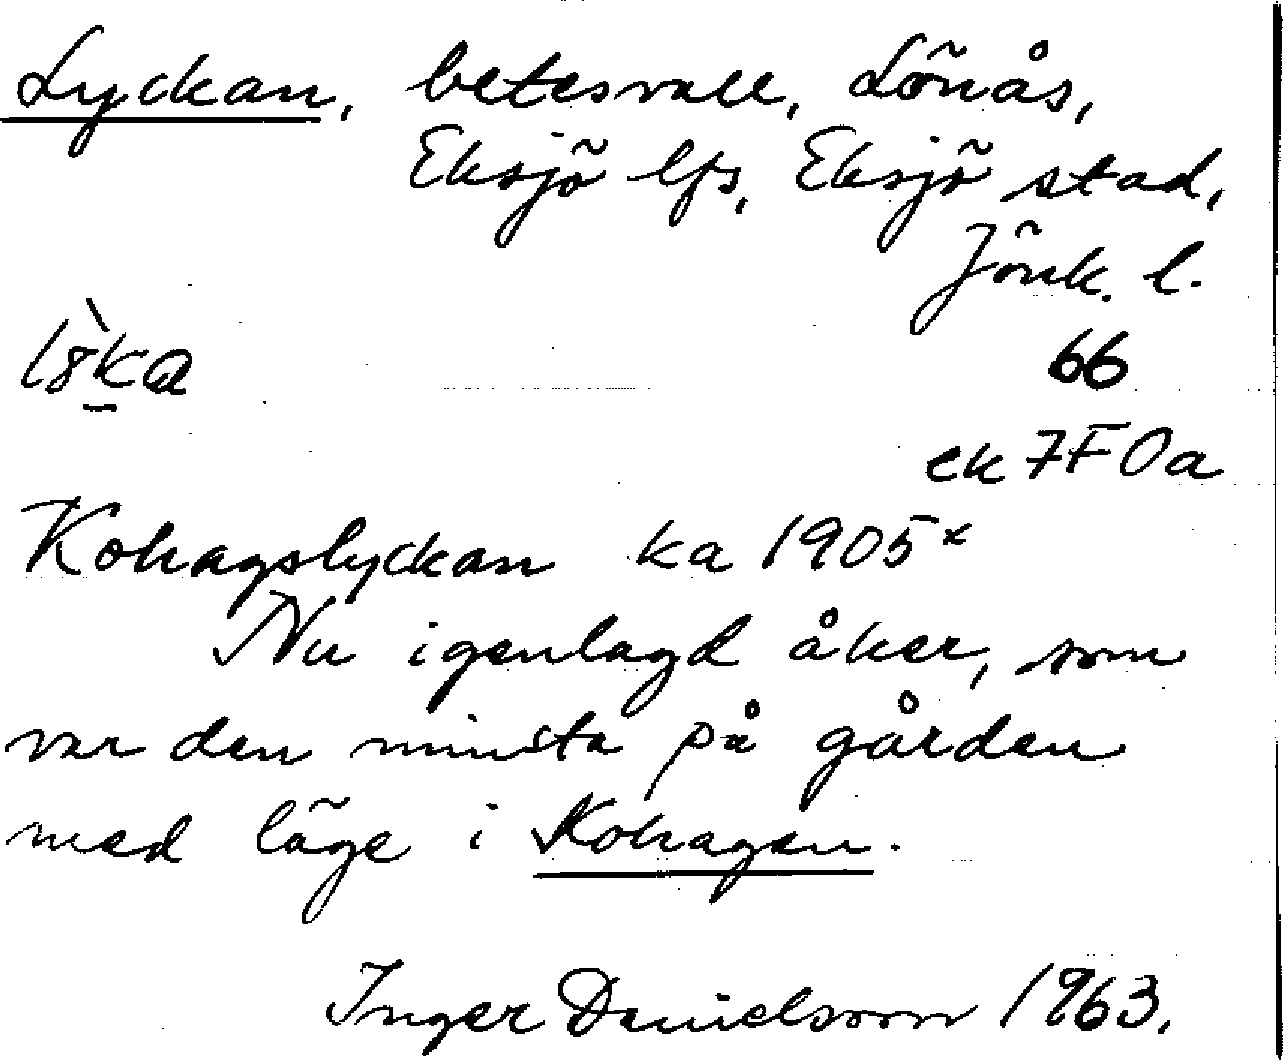 Lyckan, betesvall, Lönås,
Eksjö lfs, Eksjö stad,
Jönk. l.
66
ek 7F 0a
Kohagslyckan ka 1905ˣ
Nu igenlagd åker, som
var den minsta på gården
med läge i Kohagen.
Inger Danielsson 1963.